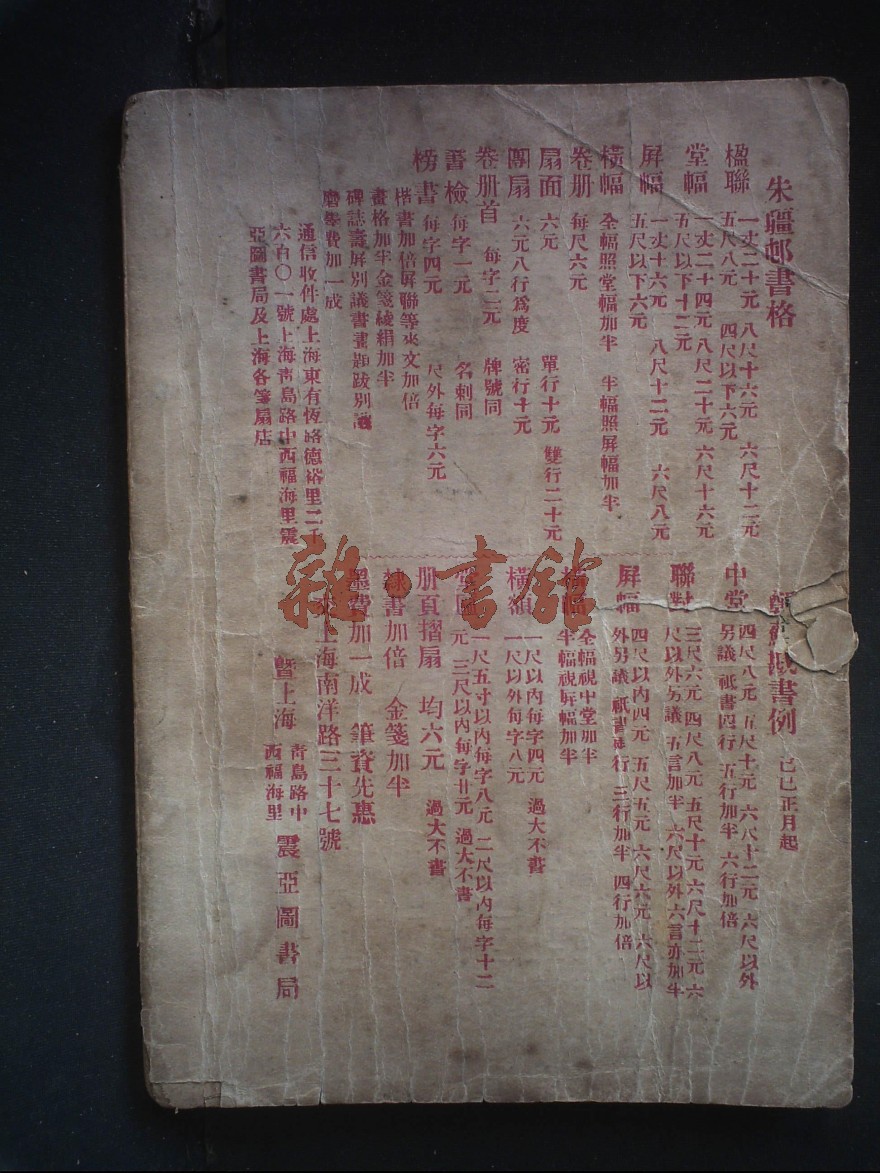 朱彊邨書格
楹聯 一丈二十元 八尺十六元 六尺十二元
五尺八元 四尺以下六元
堂幅 一丈二十四元 八尺二十元 六尺十六元
五尺以下十二元
屏幅 一丈十六元 八尺十二元 六尺八元
五尺以下六元
橫幅 全幅照堂幅加半 半幅照屏幅加半
卷册 每尺六元
扇面 六元 單行十元 雙行二十元
團扇 六元八行爲度 密行十元
卷册首 每字二元 牌號同
書檢 每字一元 名刺同
榜書 每字四元 尺外每字六元
楷書加倍屏聯等來文加倍
畫格加半金箋綾絹加半
碑誌壽屏別議書畫題跋別議
磨墨費加一成
通信收件處上海東有恆路德裕里二千
六百〇一號上海靑島路中西福海里震
亞圖書局及上海各箋扇店
書例 己巳正月起
中堂 四尺八元 五尺十元 六尺十二元 六尺以外
另議 祇書四行 五行加半 六行加倍
聯對 三尺六元 四尺八元 五尺十元 六尺十二元 六
尺以外另議 五言加半 六尺以外六言亦加半
屏幅 四尺以內四元 五尺五元 六尺六元 六尺以
外另議 祇書兩行 三行加半 四行加倍
橫幅 全幅視中堂加半
半幅視屏幅加半
橫額 一尺以內每字四元 過大不書
一尺以外每字八元
堂匾 一尺五寸以內每字八元 二尺以內每字十二
元 三尺以內每字廿元 過大不書
册頁摺扇 均六元 過大不書
隸書加倍 金箋加半
墨費加一成 筆資先惠
上海南洋路三十七號
暨上海 靑島路中
西福海里 震亞圖書局
雜·書館